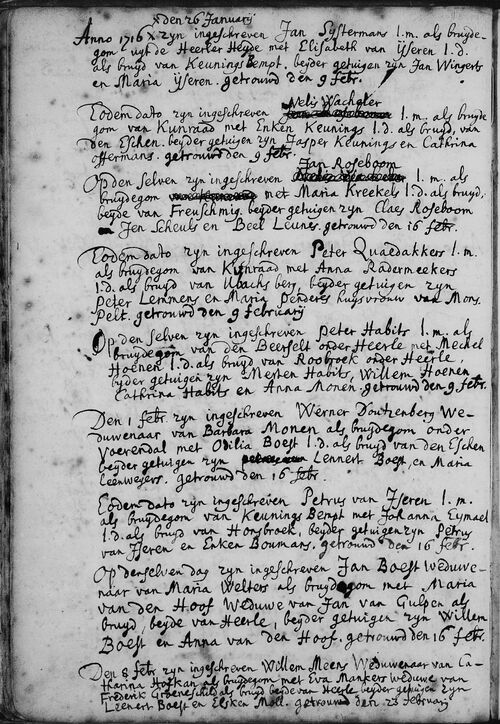 den 26 Januarij
Anno 1716 x zyn ingeschreven Jan Systermans l.m. als bruyde-
gom uyt de Heerler Heyde met Elisabeth van ijseren l.d.
als bruyd van Keunings bempt. beyder getuigen zyn Jan Wingerts
en Maria ijseren. getrouwd den 9 febr.
Nelis Wachgler
Eodem dato zyn ingeschreven l.m. als bruyde
gom van Kunraad met Enken Keunings l.d. als bruyd, van
den Eschen. beyder getuigen zyn Jasper Keunings en Cathrina
offermans. getrouwd den 9 febr.
Jan Roseboom
Op den selven zyn ingeschreven l.m. als
bruydegom met Maria Kreekels l.d. als bruyd,
beyde van Freuschmig. beyder getuigen zyn Claes Roseboom
Jen Scheuls en Beel Leunes. getrouwd den 16 febr.
Eodem dato zyn ingeschreven Peter Quaedakkers l.m.
als bruydegom van Kunraad met Anna Radermeekers
l.d. als bruyd van Ubachsberg, beyder getuigen zyn
Peter Lemmens en Maria Penders huysvrouw van Mons.
Pelt. getrouwd den 9 februarij
Op den selven zyn ingeschreven Peter Habits l.m. als
bruydegom van den Beerselt onder Heerle met Mechel
Hoenen l.d. als bruyd van Roobroek onder Heerle,
byder getuigen zyn Merten Habits, Willem Hoenen
Cathrina Habits en Anna Monen. getrouwd den 9 febr.
Den 1 febr. zyn ingeschreven Werner Doutzenberg We-
duwenaar van Barbara Monen als bruydegom onder
Voerendal met Odilia Boest l.d. als bruyd van den Eschen
beyder getuigen zyn Lennert Boest en Maria
Leenwegers. getrouwd den 16 febr.
Eodem dato zyn ingeschreven Petrus van Jseren l.m.
als bruydegom van Keunings Bempt met Johanna Eymael
l.d. als bruyd van Honsbroek, beyder getuigen zyn Petrus
van Jseren en Enken Boumans. getrouwd den 16 febr.
Op denselven dag zyn ingeschreven Jan Boest Weduwe-
naar van Maria Welters als bruydegom met Maria
van den Hoof Weduwe van Jan van Gulpen als
bruyd, beyde van Heerle, beyder getuigen zyn Willem
Boest en Anna van den Hoof. getrouwd den 16 febr.
Den 8 febr zyn ingeschreven Willem Meens Weduwenaar van Ca-
tharina Hofkan als bruydegom met Eva Mankers weduwe van
Frederik Groeneschild als bruyd beyde van Heerle beyder getuigen zyn
Leenert Boest en Elsken Moll. getrouwd den 23 februarij